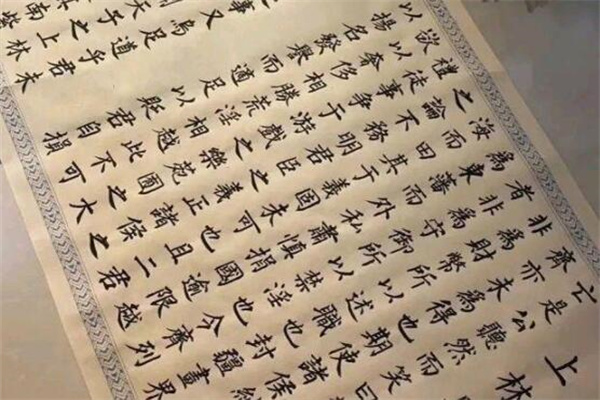 上林
亡是公聽然而笑曰
齊亦未為得也期使諸侯
者非為財幣所以述職也封疆畫界
者非為守御所以禁淫也今齊列
為東藩而外私肅慎捐國逾限越
海而田其于義固未可也且二君
之論不務明君臣之義正諸侯之
禮徒事爭于游戲之樂苑囿之大
欲以奢侈相勝荒淫相越此不可
以揚名發譽而適足以貶君自損
事又烏足道乎君未
天子之上林
南紫